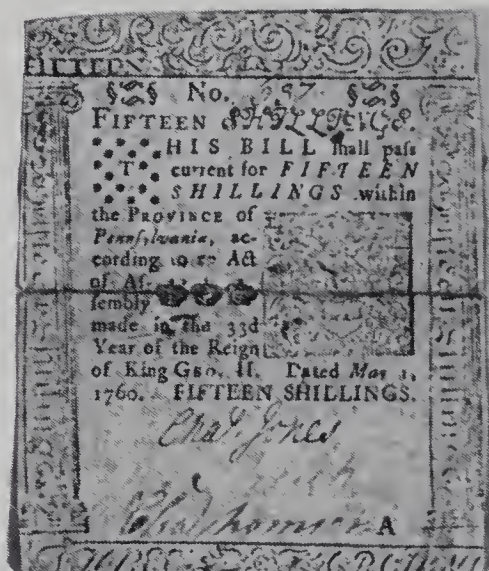 FIFTEEN
No.
FIFTEEN SHILLINGS.
THIS BILL ſhall paſs
current for FIFTEEN
SHILLINGS within
the PROVINCE of
Pennſylvania, ac-
cording to Act
of Aſ-
ſembly
made in the 33d
Year of the Reign
of King GEO. II. Dated May 1,
1760. FIFTEEN SHILLINGS.
Chas. Jones
Chas Thomson A